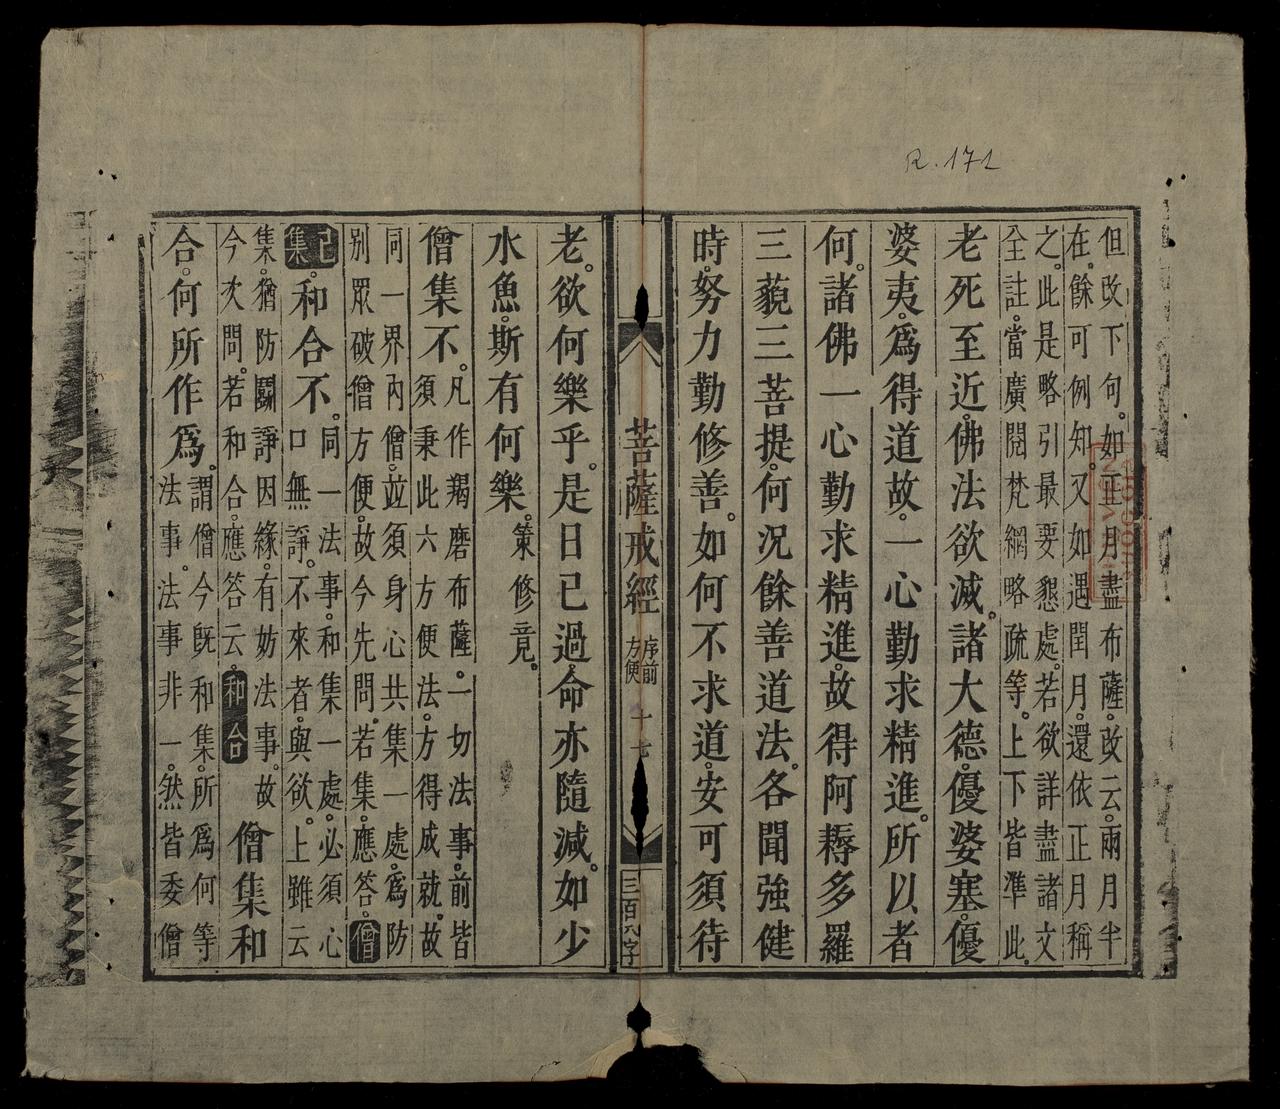 R.171
但改下句。如正月盡布薩。改云。兩月半
在。餘可例知。又如遇閏月。還依正月稱
之。此是略引最要懇處。若欲詳盡諸文
全註。當廣閱梵網略疏等。上下皆準此。
老死至近。佛法欲滅。諸大德。優婆塞。優
婆夷。爲得道故。一心勤求精進。所以者
何。諸佛一心勤求精進。故得阿耨多羅
三藐三菩提。何況餘善道法。各聞強健
時。努力勤修善。如何不求道。安可須待
菩薩戒經
序前
方便
十七
三百八字
老。欲何樂乎。是日已過。命亦隨減。如少
水魚。斯有何樂。策修竟。
僧集不。凡作羯磨布薩。一切法事。前皆
須秉此六方便法。方得成就。故
同一界內僧。竝須身心共集一處。爲防
別眾破僧方便。故今先問。若集。應答。僧
已集。和合不。同一法事。和集一處。必須心
口無諍。不來者。與欲。上雖云
集。猶防鬭諍因緣。有妨法事。故
今次問。若和合。應答云。和合 僧集和
合。何所作爲。謂僧今既和集。所爲何等
法事。法事非一。然皆委僧